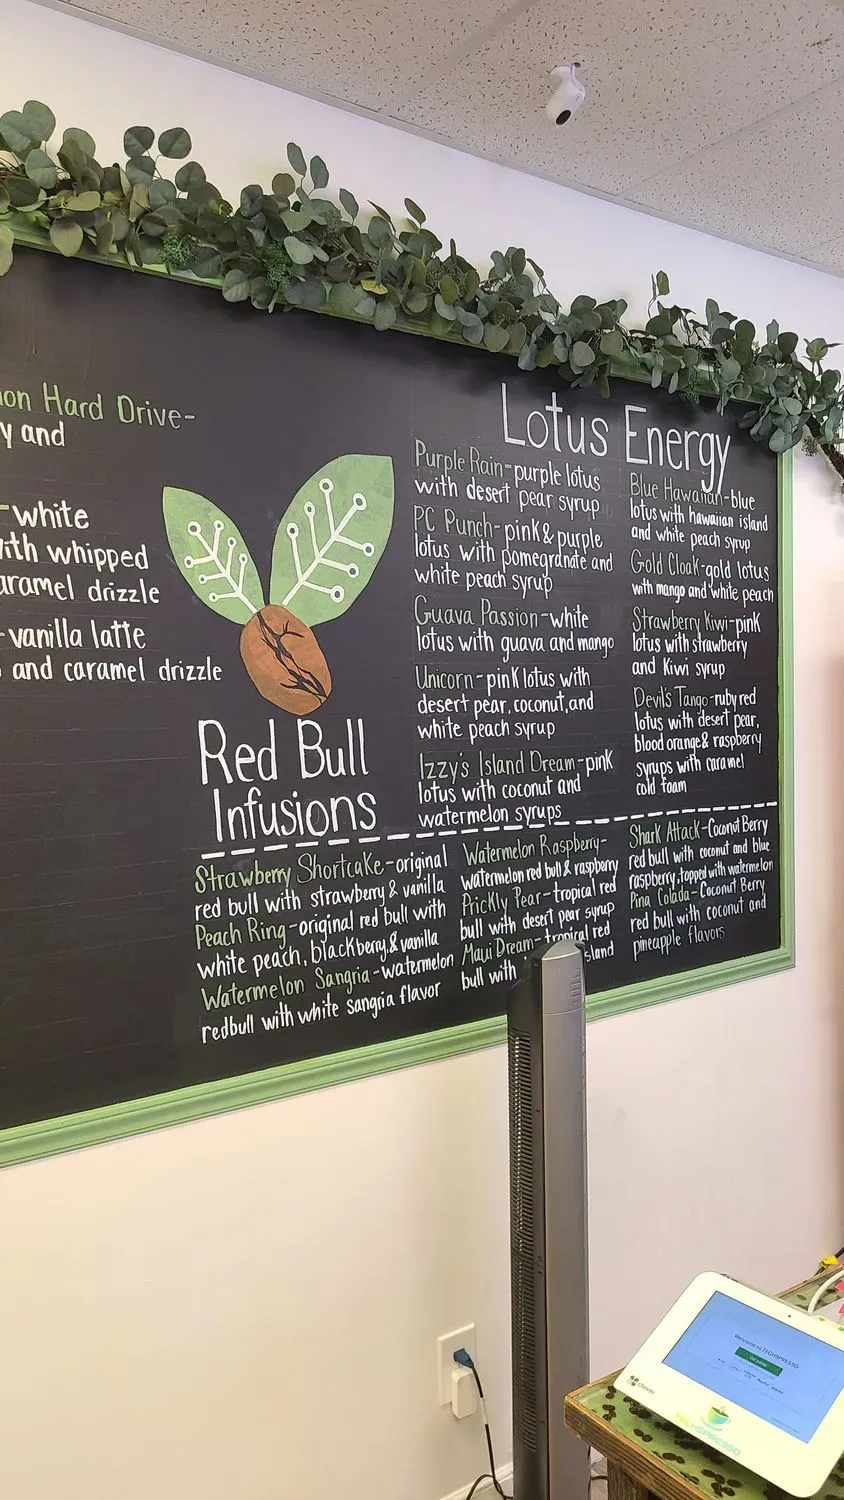 non Hard Drive-
y and
-white
ith whipped
aramel drizzle
-vanilla latte
and caramel drizzle
Lotus Energy
Purple Rain-purple lotus
with desert pear syrup
PC Punch-pink & purple
lotus with pomegranate and
white peach syrup
Guava Passion-white
lotus with guava and mango
Unicorn-pink lotus with
desert pear, coconut, and
white peach syrup
Izzy's Island Dream-pink
lotus with coconut and
watermelon syrups
Blue Hawaiian-blue
lotus with hawaiian island
and white peach syrup
Gold Cloak-gold lotus
with mango and white peach
Strawberry Kiwi-pink
lotus with strawberry
and Kiwi syrup
Devil's Tango-ruby red
lotus with desert pear,
blood orange & raspberry
syrups with caramel
cold foam
Red Bull
Infusions
Strawberry Shortcake-original
red bull with strawberry & vanilla
Peach Ring-original red bull with
white peach, blackberry, & vanilla
Watermelon Sangria-watermelon
redbull with white sangria flavor
Watermelon Raspberry-
watermelon red bull & raspberry
Prickly Pear-tropical red
bull with desert pear syrup
Maui Dream-tropical red
bull with island
Shark Attack-Coconut Berry
red bull with coconut and blue
raspberry, topped with watermelon
Pina Colada-Coconut Berry
red bull with coconut and
pineapple flavors
Welcome to TECHSPRESSO
clover
TECHSPRESSO